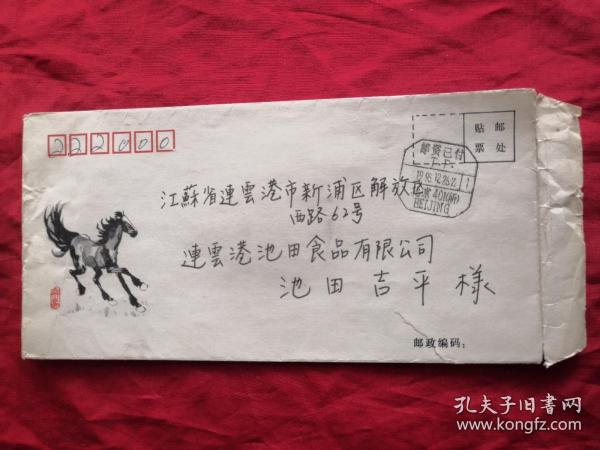 222000
贴 邮
票 处
邮资已付
BEIJING
江蘇省連雲港市新浦区解放区
西路62号
連雲港池田食品有限公司
池田吉平様
邮政编码:
孔夫子旧书网
www.kongfz.com